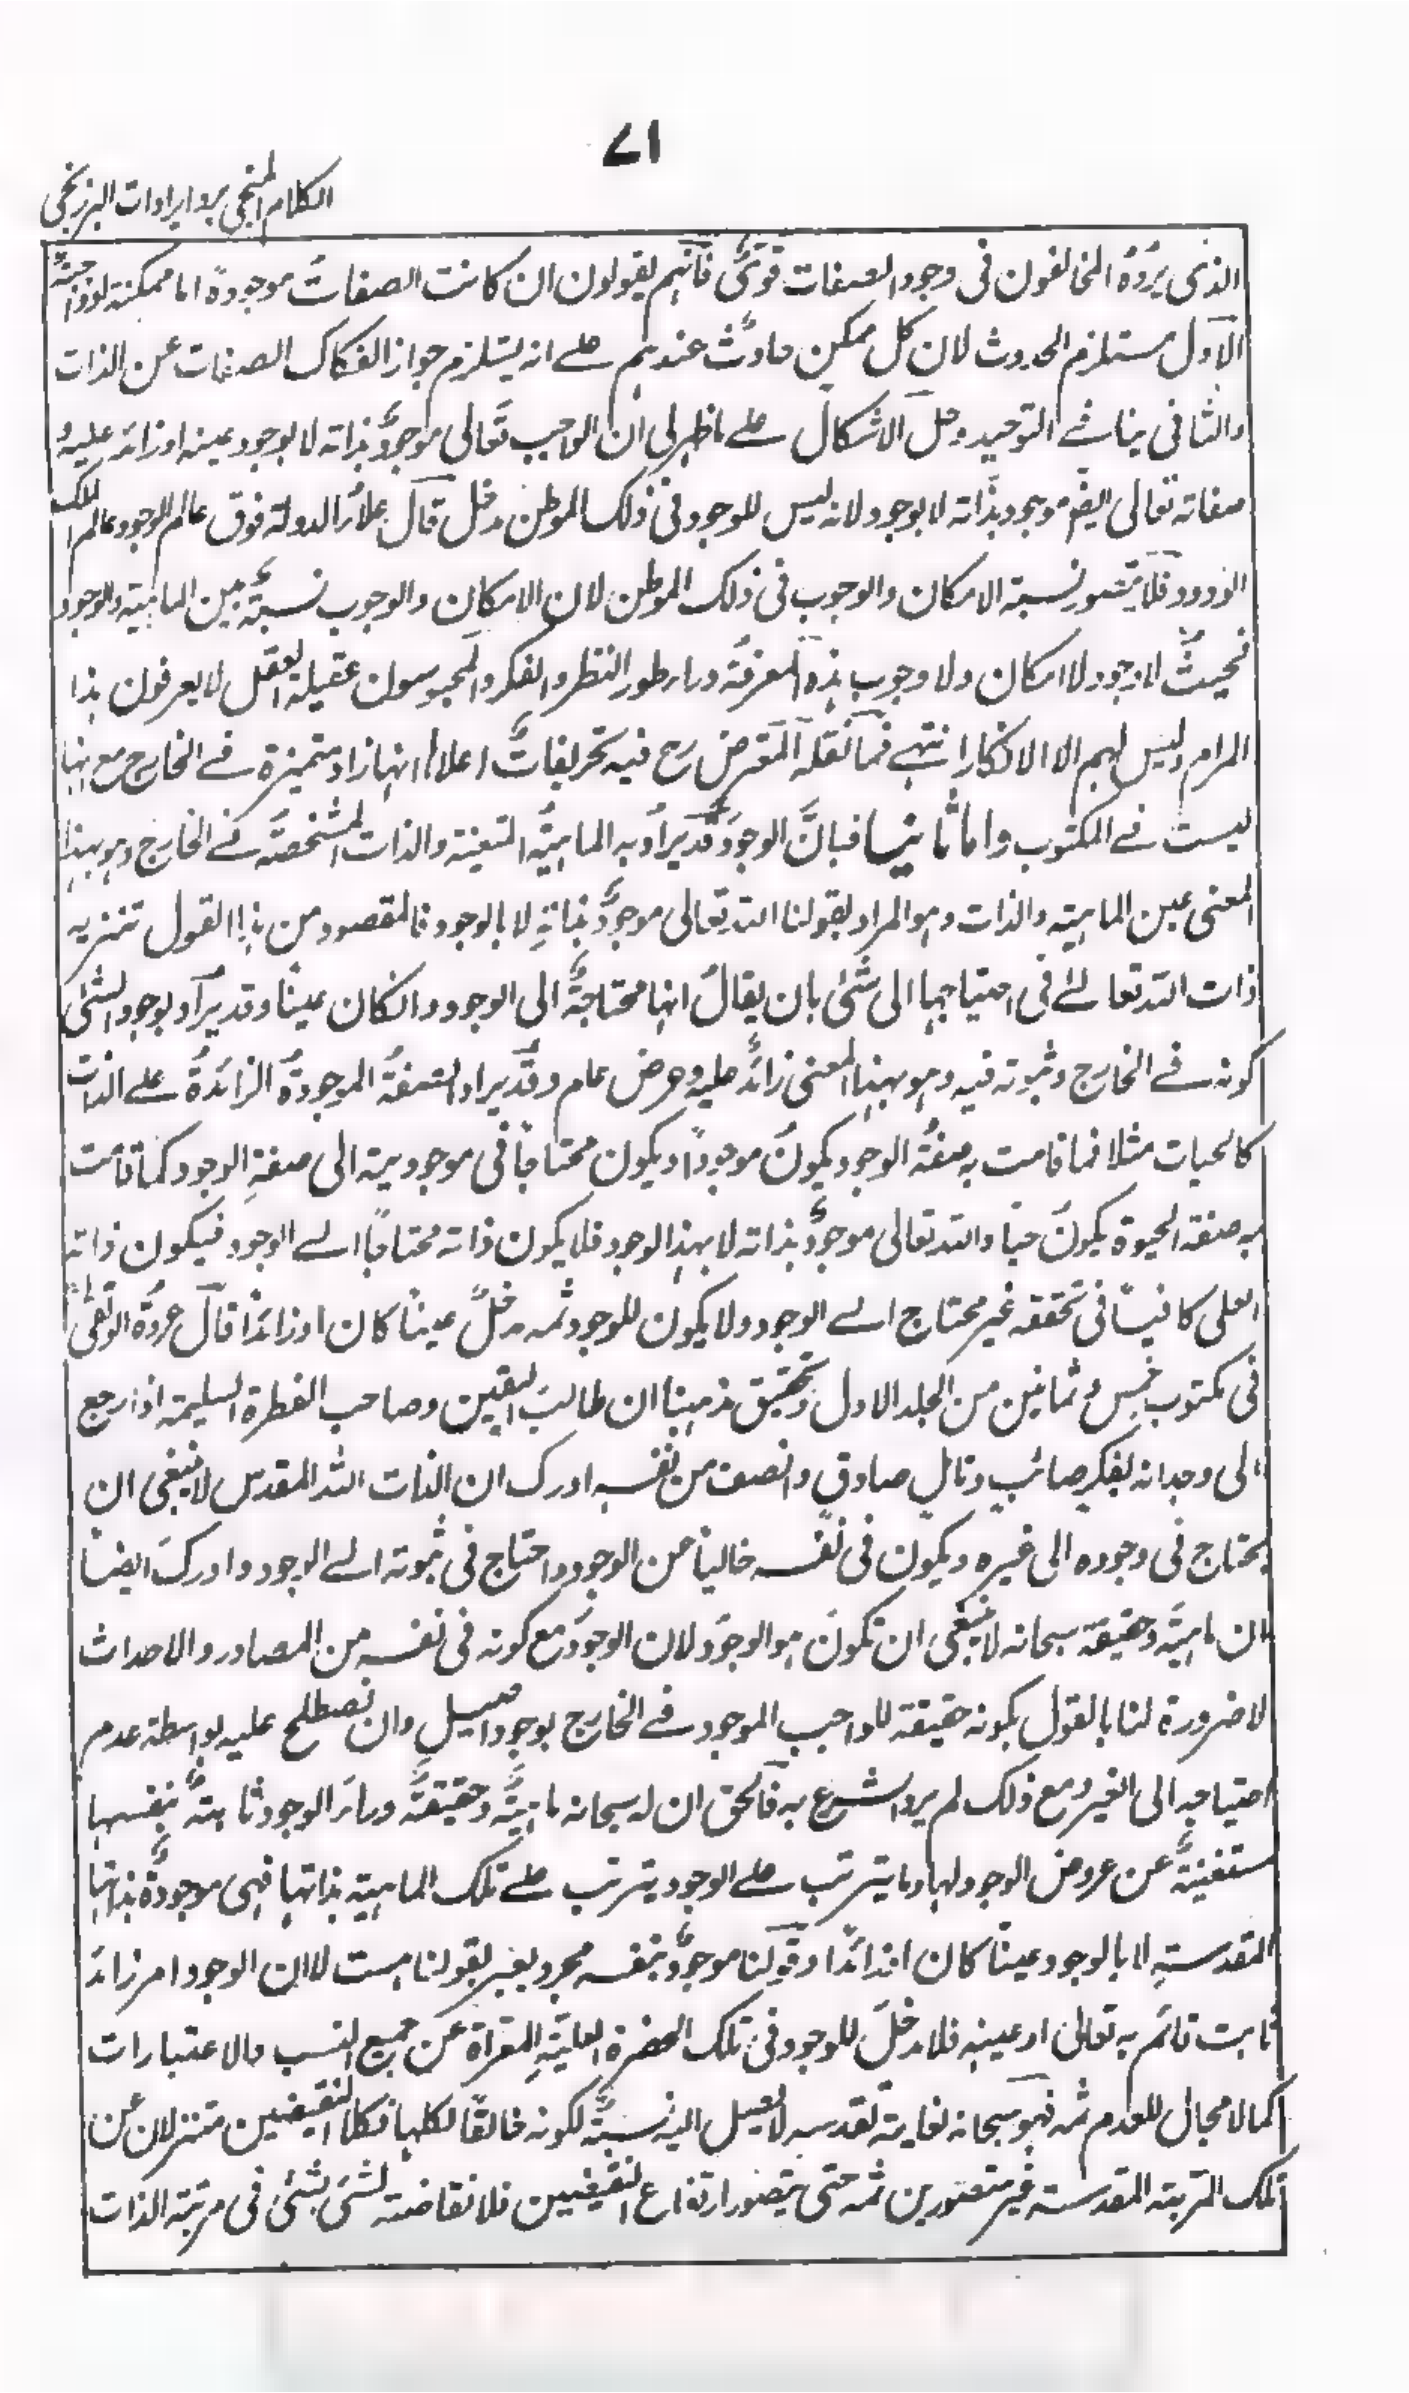 ٧١
الكلام المنجي برد ايرادات البرزنجي
الذى يرده المخالفون فى وجود الصفات قوىٌ فانهم يقولون ان كانت الصفاتُ موجودةً اما ممكنة او واجبةٌ
الاول مستلزم الحدوث لان كل ممكن حادثٌ عندهم على انه يستلزم جواز انفكاك الصفات عن الذات
والثانى ينافى التوحيد وحل الاشكال على ما ظهر لى ان الواجب تعالى موجودٌ بذاته لا بوجود عينه او زائد عليه و
صفاته تعالى ايضا موجود بذاته لا بوجود لانه ليس للوجود فى ذلك الموطن دخل قال علاؤ الدولة فوق عالم الوجود عالم الملك
الودود فلا يتصور نسبة الامكان والوجوب فى ذلك الموطن لان الامكان والوجوب نسبةٌ بين الماهية والوجود
فحيثُ لا وجود لا امكان ولا وجوب هذه المعرفةُ وراء طور النظر والفكر والمحبوسون عقيلة العقل لا يعرفون هذا
المرام وليس لهم الا الانكار انتهى فما نقله المعترض رح فيه تحريفاتٌ اعلاها انها زاد متميزة فى الخارج مع انها
ليست فى المكتوب واما ثانيا فبانَّ الوجودَ قد يراد به الماهيةُ المتعينة والذات المشخصة فى الخارج وهو بهذا
المعنى عين الماهية والذات وهو المراد بقولنا الله تعالى موجودٌ بذاتهِ لا بالوجود فالمقصود من هذا القول تنزيه
ذات الله تعالى فى احتياجها الى شئ بان يقالُ انها محتاجةٌ الى الوجود وان كان عيناً وقد يراد بوجود الشئ
كونه فى الخارج وثبوته فيه وهو بهذا المعنى زائدٌ عليه وعرض عام وقد يراد الصفةُ الموجودةُ الزائدةُ على الذات
كالحيات مثلا فما قامت به صفةُ الوجود يكونُ موجودًا ويكون محتاجًا فى موجوديته الى صفةِ الوجود كما قامت
به صفة الحيوة يكونُ حيًا والله تعالى موجودٌ بذاته لا بهذا الوجود فلا يكون ذاته محتاجًا الى الوجود فيكون ذاته
العلى كافيًا فى تحققه غير محتاج الى الوجود ولا يكون للوجود ثمه دخلٌ عينًا كان او زائدًا قال عروةُ الوثقىٰ
فى مكتوب خمس وثمانين من الجلد الاول وتحقيق مذهبنا ان طالبَ اليقين وصاحب الفطرة السليمة اذا رجع
الى وجدانه بفكرٍ صائبٍ وتاملٍ صادقٍ وانصف من نفسه ادرك ان الذات الله المقدس لا ينبغى ان
يحتاج فى وجوده الى غيره ويكون فى نفسه خاليًا من الوجود واحتاج فى ثبوته الى الوجود وادركَ ايضًا
ان ماهيةَ وحقيقة سبحانه لا ينبغى ان تكونَ هو الوجود لان الوجودَ مع كونه فى نفسه من المصادر والاحداث
لا ضرورة لنا بالقول بكونه حقيقة للواجب الموجود فى الخارج بوجود اصيلٍ وان نصطلح عليه بواسطة عدم
احتياجه الى الغير ومع ذلك لم يرد الشرع به فالحق ان له سبحانه ماهيةٌ وحقيقةٌ وراءَ الوجود ثابتةٌ بنفسها
مستغنيةٌ عن عروض الوجود لها وما يترتب على الوجود يترتب على تلك الماهية بذاتها فهى موجودةٌ بذاتها
المقدسةِ لا بالوجود عينًا كان او زائدًا وقولنا موجودٌ بنفسه مجرد بغير بقولنا هست لا ان الوجود امر زائد
ثابت قائم به تعالى او عينه فلا دخلَ للوجود فى تلك الحضرة العليةِ المعراة عن جميع النسب والاعتبارات
كما لا مجال للعدم ثمه فهو سبحانه لغاية تقدسه لا يصل اليه نسبةٌ لكونه خالقًا لكلها فكلا النقيضين متنزلان عن
تلك المرتبة المقدسة غير متصورين ثمه حتى يتصور ارتفاع النقيضين فلا نقاضة لشئ بشئ فى مرتبة الذات